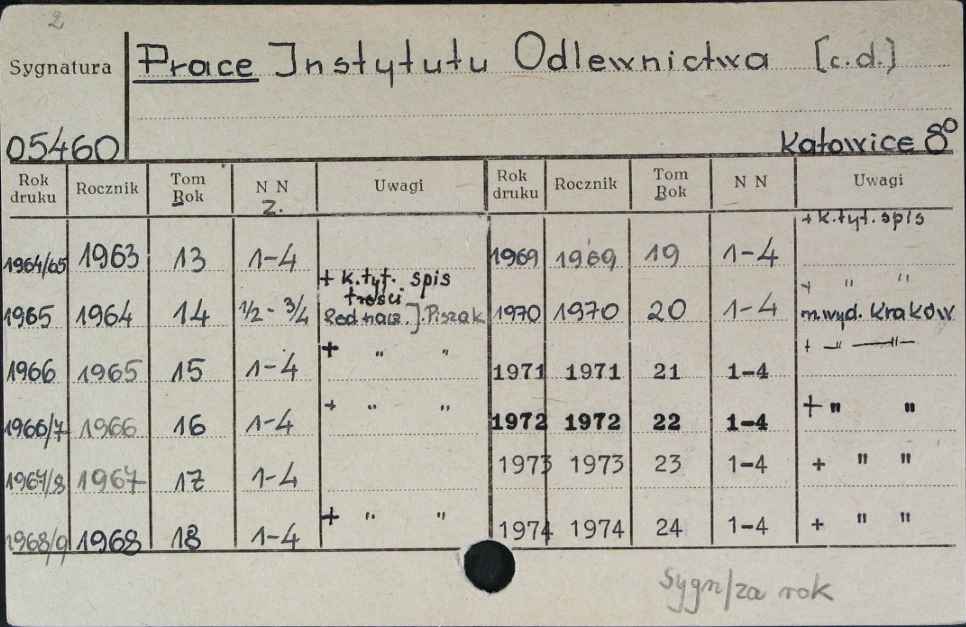 2
Sygnatura Prace Instytutu Odlewnictwa [c.d.]
05460 Katowice 8°
Rok druku Rocznik Tom Rok N N Z. Uwagi Rok druku Rocznik Tom Rok N N Uwagi
1964/65 1963 13 1-4 1969 1969 19 1-4 + k.tyt. spis
1965 1964 14 1/2 - 3/4 + k.tyt. spis treści Red nacz. J. Piszak 1970 1970 20 1-4 + " " m.wyd. Kraków
1966 1965 15 1-4 + " " 1971 1971 21 1-4 + —"— —"—
1966/7 1966 16 1-4 + " " 1972 1972 22 1-4 + " "
1967/8 1967 17 1-4 1973 1973 23 1-4 + " "
1968/9 1968 18 1-4 + " " 1974 1974 24 1-4 + " "
Sygn/za rok